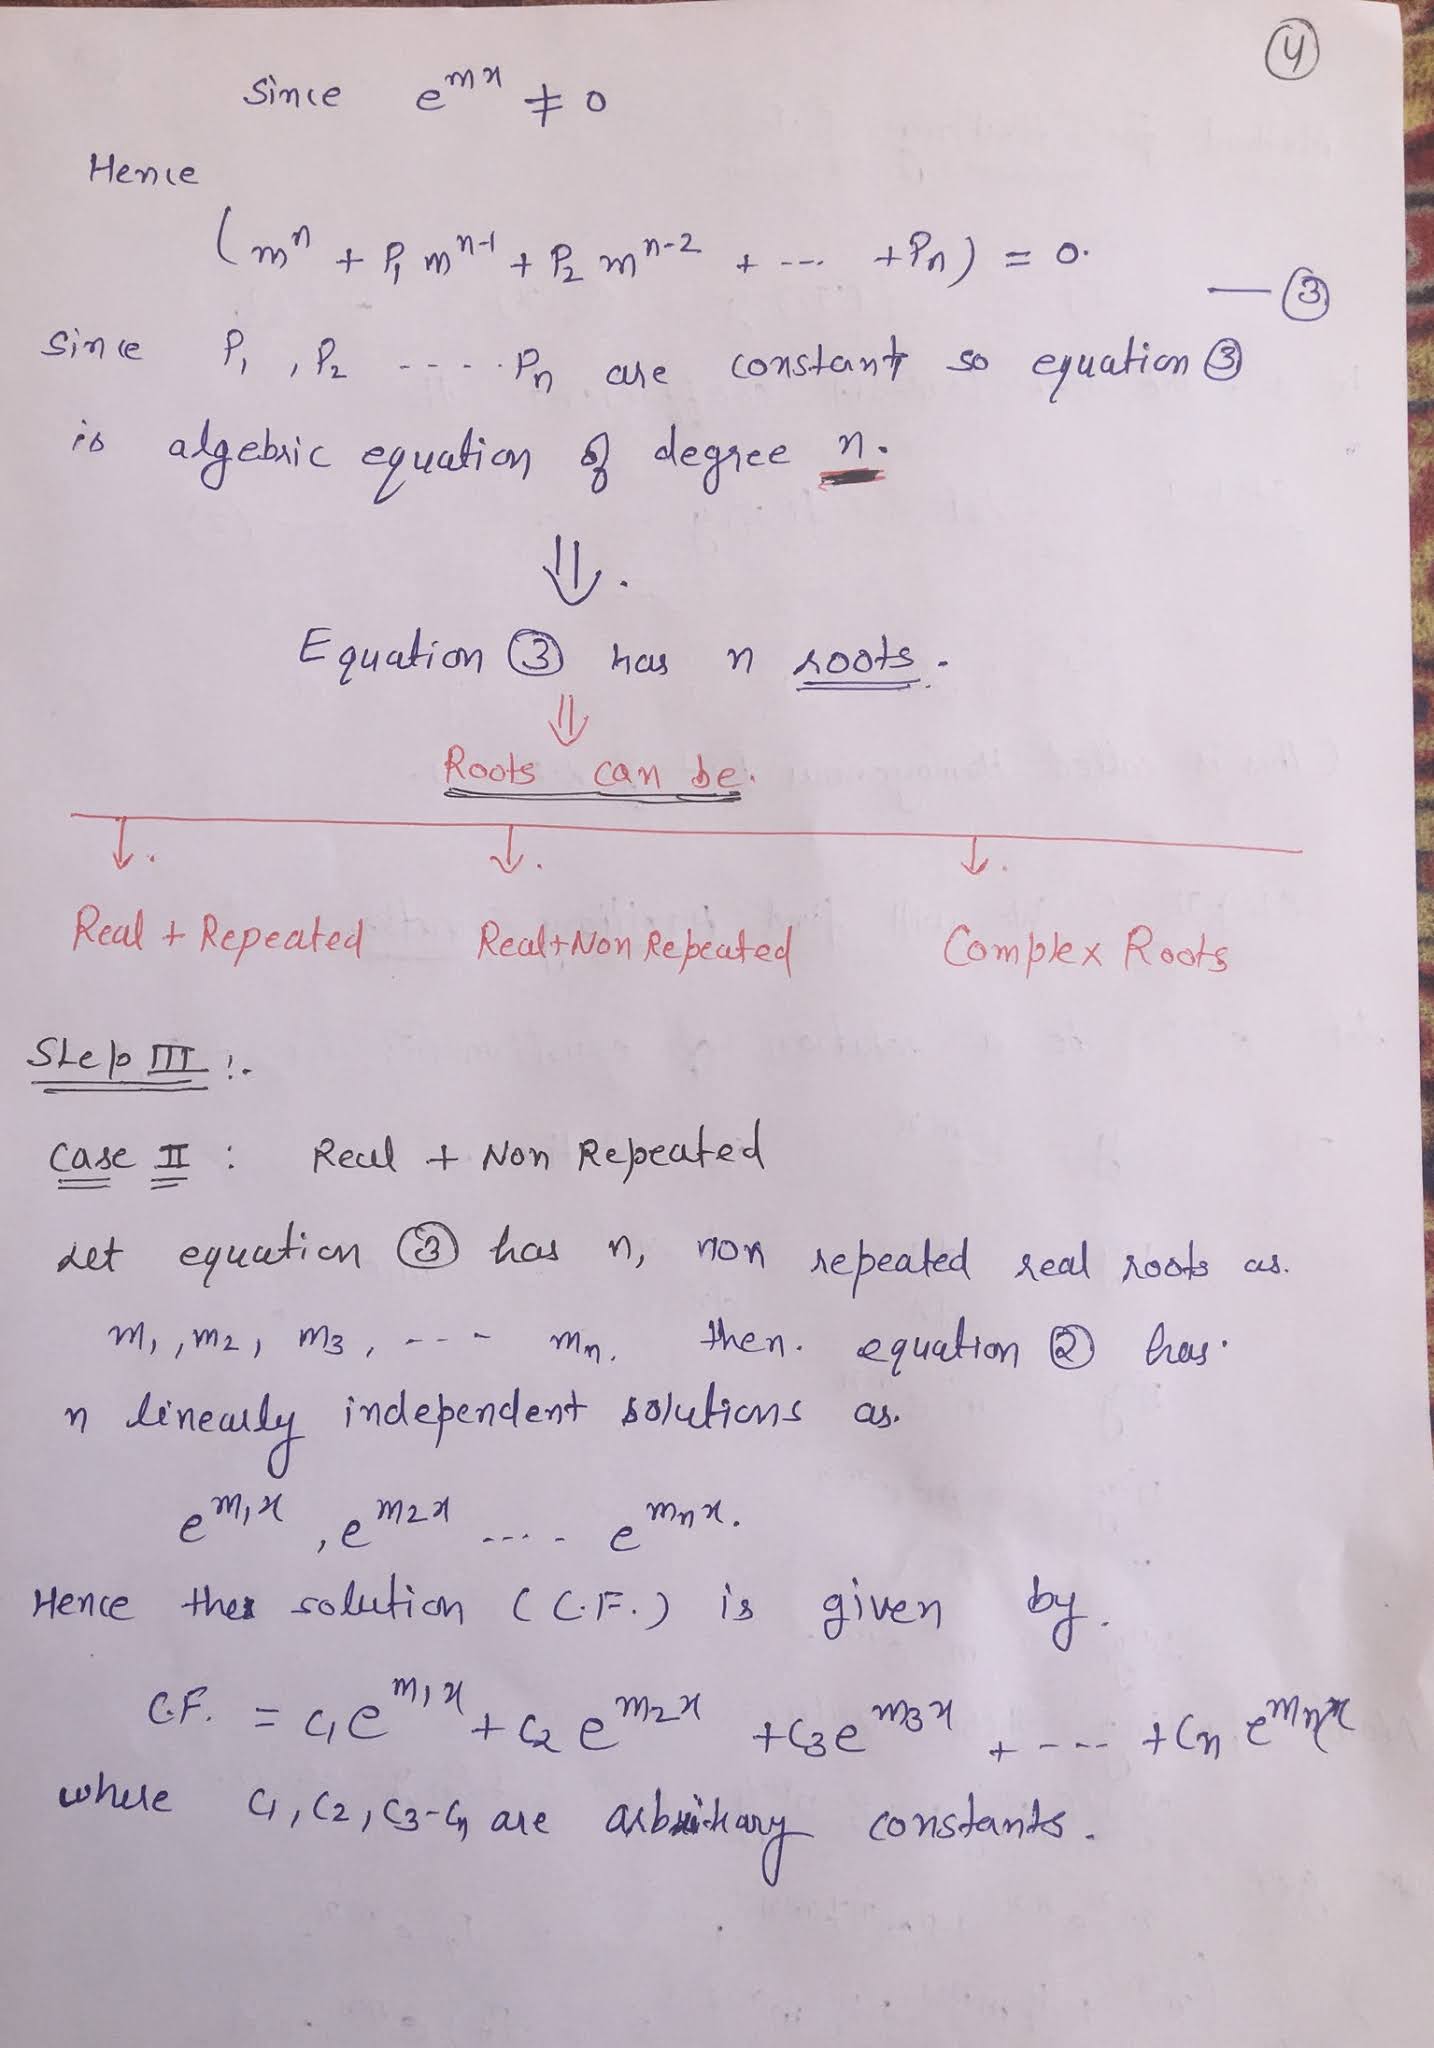 4
Since e^{mx} ≠ 0
Hence
(m^n + P₁ m^{n-1} + P₂ m^{n-2} + --- + Pₙ) = 0. — ③
Since P₁, P₂ ----- Pₙ are constant so equation ③
is algebric equation of degree n.
⇓.
Equation ③ has n roots.
⇓
Roots can be.
↓. ↓. ↓.
Real + Repeated Real+Non Repeated Complex Roots
Step III :-
Case II : Real + Non Repeated
Let equation ③ has n, non repeated real roots as.
m₁, m₂, m₃, --- mₙ. then. equation ② has.
n linearly independent solutions as.
e^{m₁x}, e^{m₂x} ---- e^{mₙx}.
Hence the solution (C.F.) is given by.
C.F. = c₁e^{m₁x} + c₂ e^{m₂x} + c₃e^{m₃x} + --- + cₙ e^{mₙx}
where c₁, c₂, c₃-cₙ are arbritrary constants.